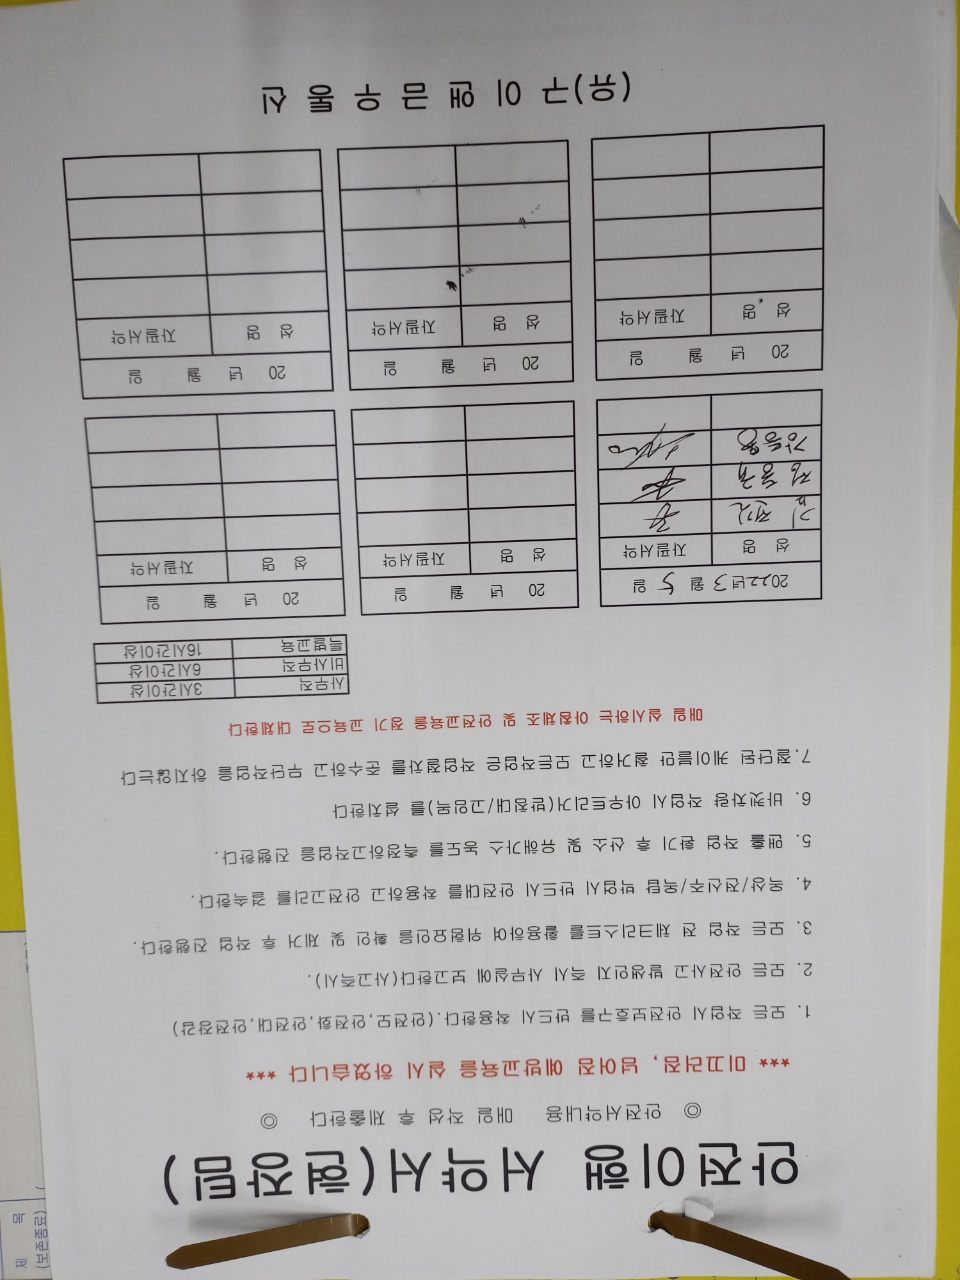 안전이행 서약서(현장팀)
◎ 안전서약내용 매일 작성 후 제출한다 ◎
*** 미끄러짐, 넘어짐 예방교육을 실시 하였습니다 ***
1. 모든 작업시 안전보호구를 반드시 착용한다.(안전모,안전화,안전대,안전장갑)
2. 모든 안전사고 발생인지 즉시 사무실에 보고한다(사고즉시).
3. 모든 작업 전 체크리스트를 활용하여 위험요인을 확인 및 제거 후 작업 진행한다.
4. 옥상/전신주/옥탑 작업시 반드시 안전대를 착용하고 안전고리를 결속한다.
5. 맨홀 작업 환기 후 산소 및 유해가스 농도를 측정하고작업을 진행한다.
6. 바켓차량 작업시 아우트리거(받침대/고임목)를 설치한다
7.절단된 케이블만 철거하고 모든작업은 작업절차를 준수하고 무단작업을 하지않는다
매일 실시하는 아침체조 및 안전교육을 정기 교육으로 대체한다
사무직 3시간이상
비사무직 6시간이상
특별교육 16시간이상
2022년 3 월 5 일
성 명 자필서약
정용국
강동용
20 년 월 일
성 명 자필서약
20 년 월 일
성 명 자필서약
20 년 월 일
성 명 자필서약
20 년 월 일
성 명 자필서약
20 년 월 일
성 명 자필서약
(유)구이앤금우통신